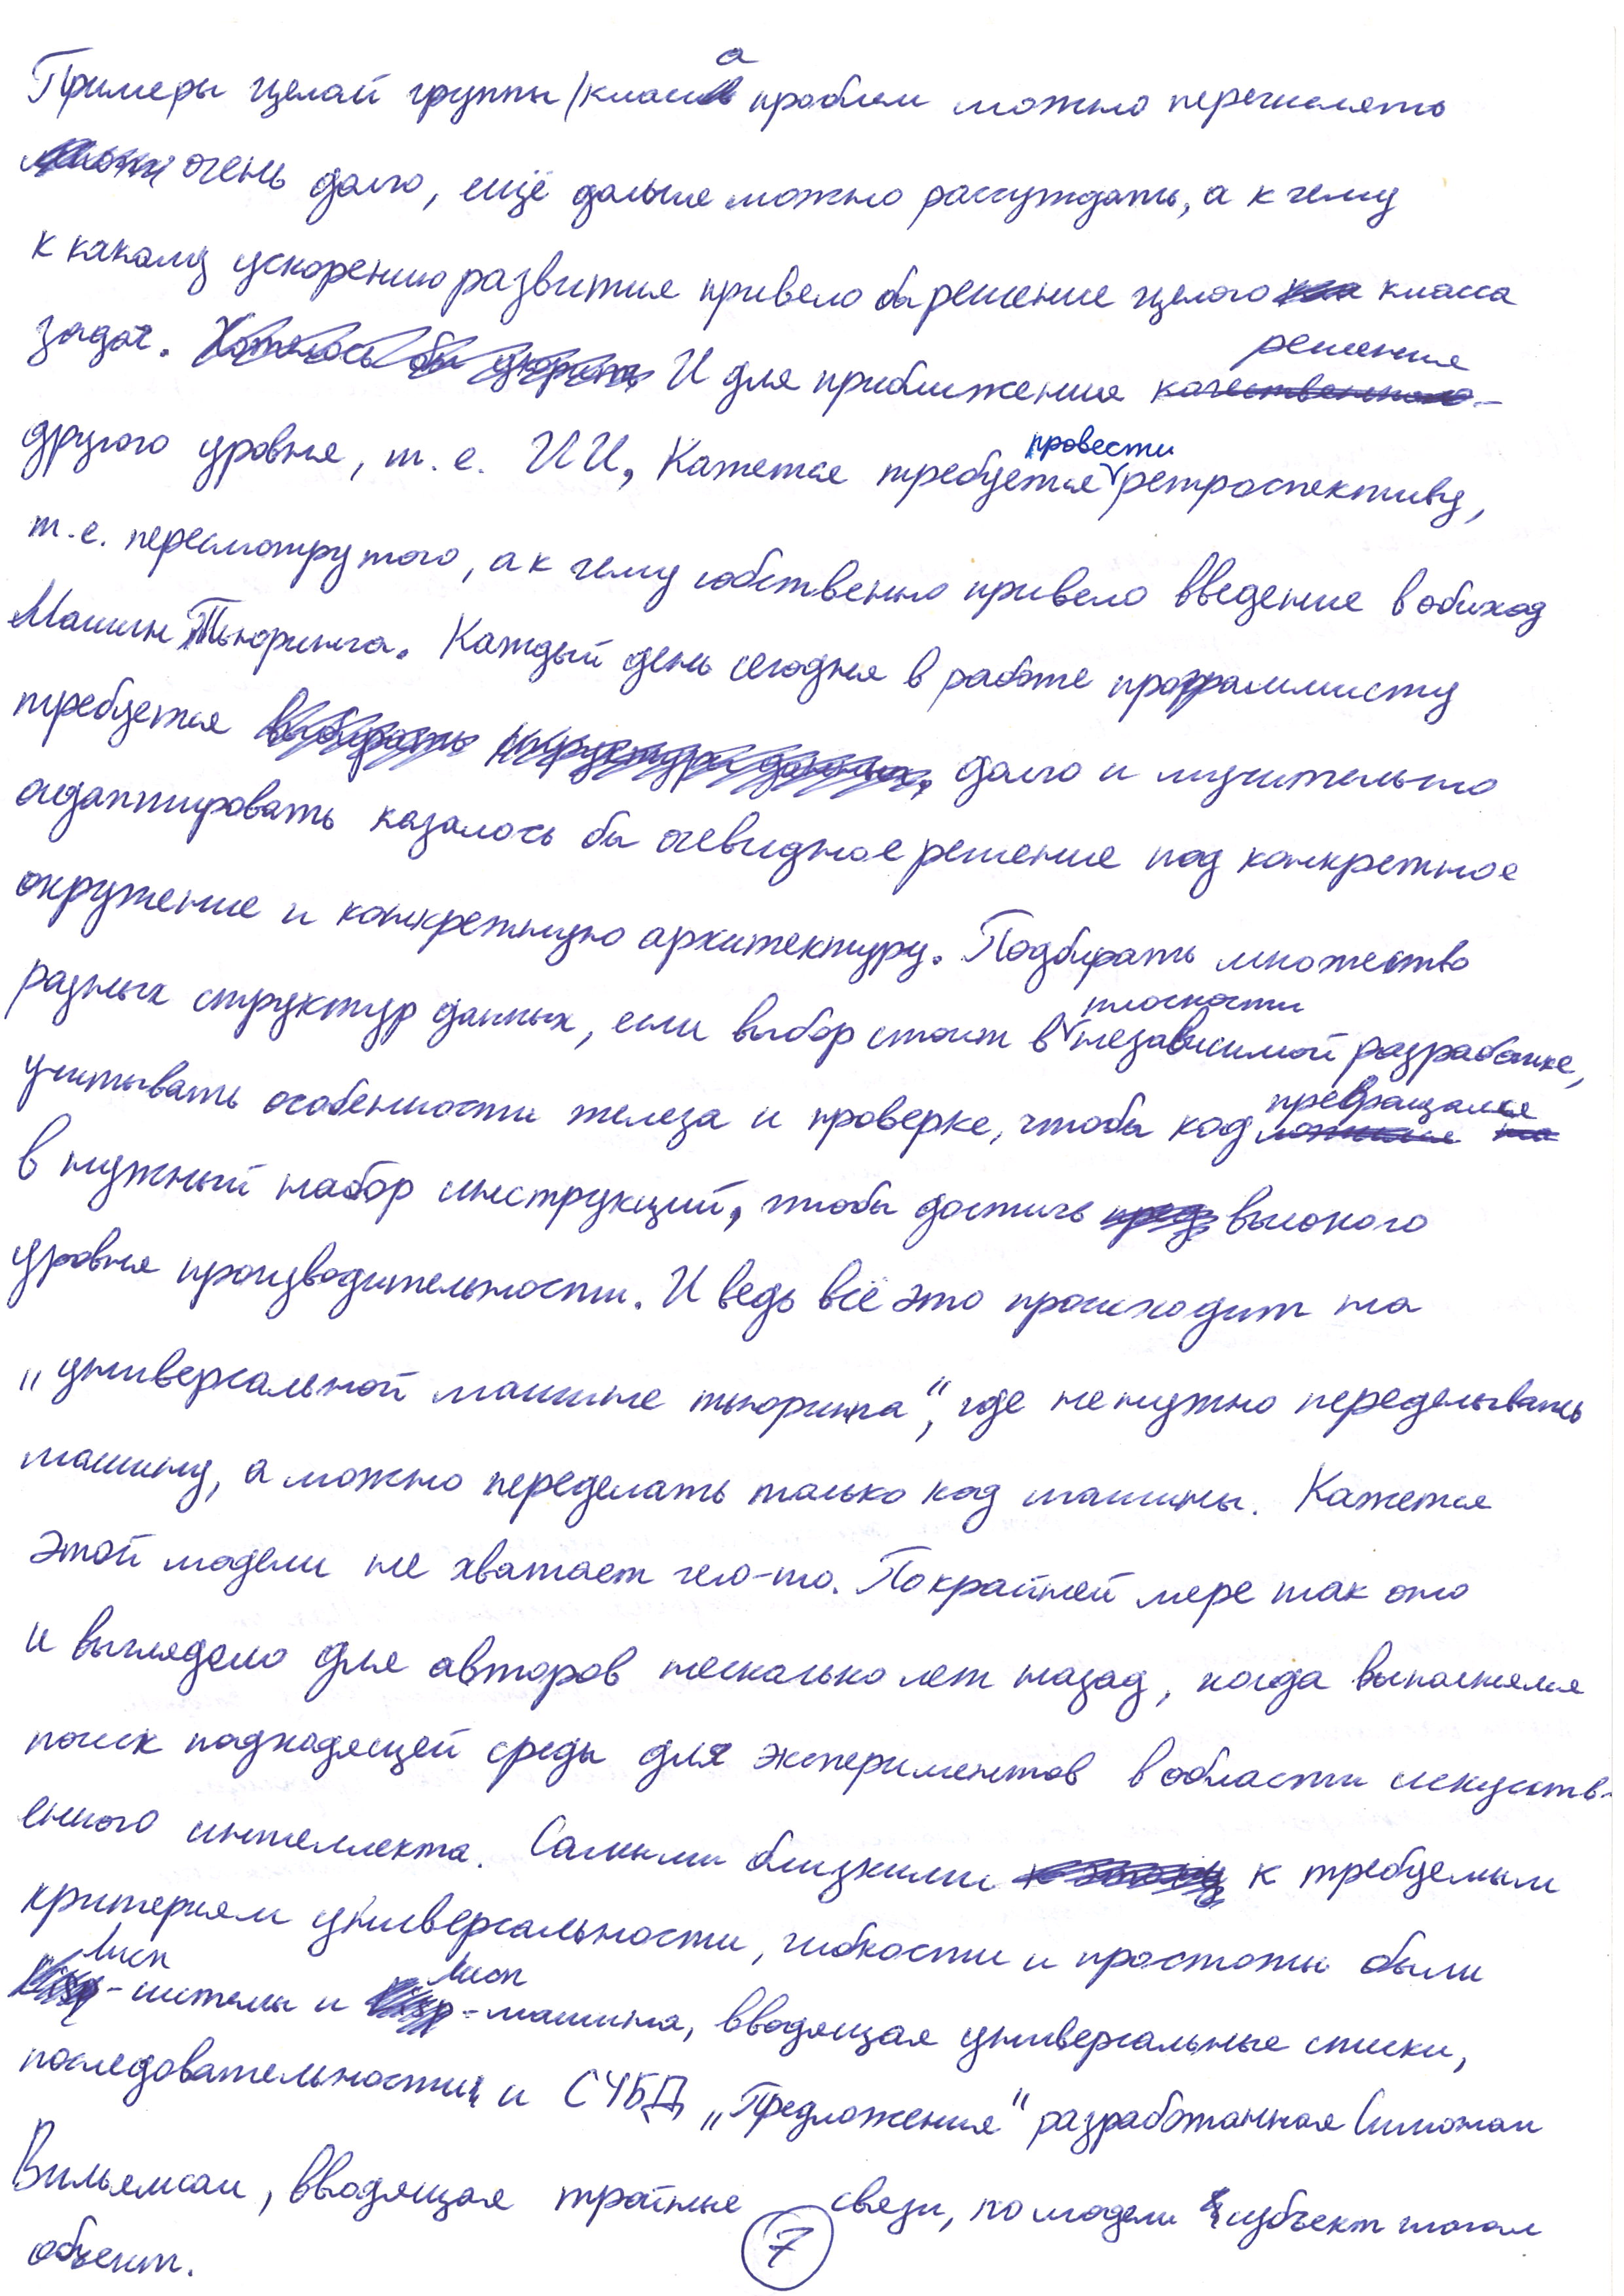 Примеры целой группы/класса проблем можно перечислять
очень долго, ещё дольше можно рассуждать, а к чему
к какому ускорению развития привело бы решение целого класса
задач. И для приближения решения
другого уровня, т.е. ИИ, кажется требуется провести ретроспективу,
т.е. пересмотру того, а к чему собственно привело введение в обиход
Машин Тьюринга. Каждый день сегодня в работе программисту
требуется долго и мучительно
адаптировать казалось бы очевидное решение под конкретное
окружение и конкретную архитектуру. Подбирать множество
разных структур данных, если выбор стоит в плоскости независимой разработке,
учитывать особенности железа и проверке, чтобы код превращался
в нужный набор инструкций, чтобы достичь высокого
уровня производительности. И ведь всё это происходит на
„универсальной машине тьюринга“, где не нужно переделывать
машину, а можно переделать только код машины. Кажется
этой модели не хватает чего-то. По крайней мере так оно
и выглядело для авторов несколько лет назад, когда выполнялся
поиск подходящей среды для экспериментов в области искусств-
енного интеллекта. Самыми близкими к требуемым
критериям универсальности, гибкости и простоты были
Лисп-системы и Лисп-машина, вводящая универсальные списки,
последовательности и СУБД „Предложения“ разработанная Симоном
Вильямсом, вводящая тройные связи, по модели субъект глагол
объект.
7